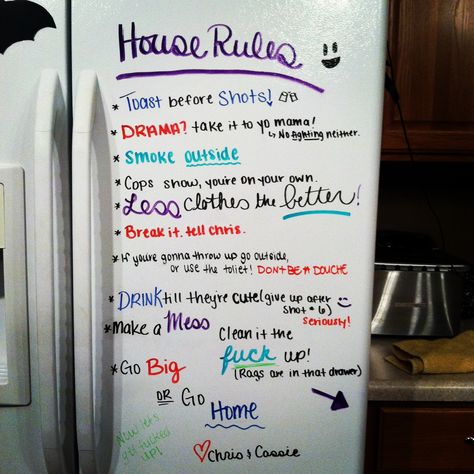 House Rules
* Toast before Shots!
* DRAMA? take it to yo mama!
↳ No fighting neither.
* Smoke outside
* Cops show, you're on your own.
* Less clothes the better!
* Break it. tell chris.
* If you're gonna throw up go outside,
or use the toliet! DON'T BE A DOUCHE
* DRINK till they're CUTE (give up after
shot # 6)
seriously!
* Make a Mess
Clean it the
fuck up!
(Rags are in that drawer)
* Go Big
OR Go
Home
Now let's
get fucked
UP!
Chris & Cassie